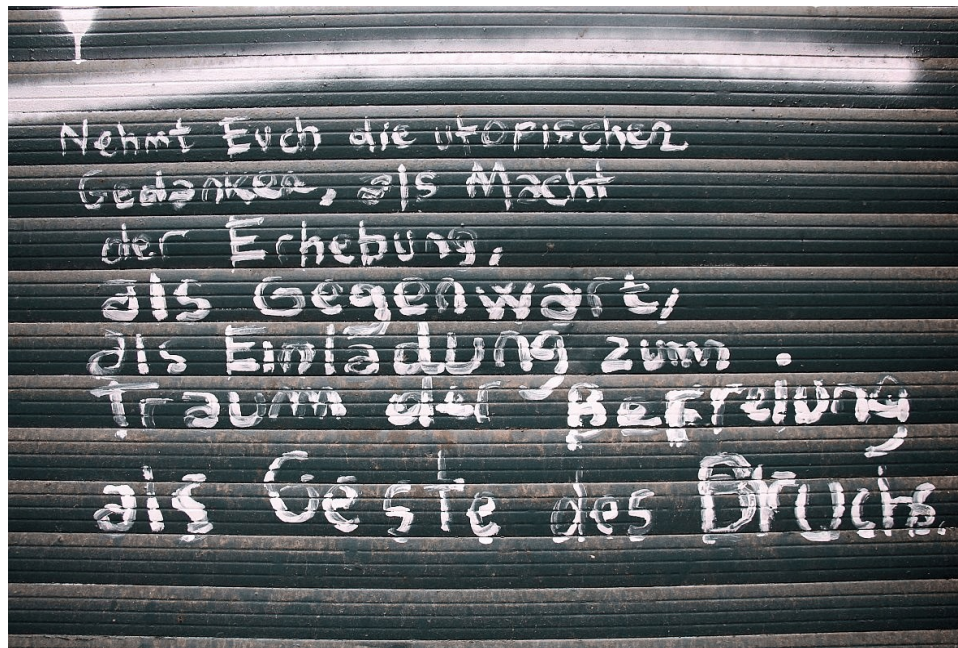 Nehmt Euch die utopischen
Gedanken, als Macht
der Erhebung,
als Gegenwart,
als Einladung zum .
Traum der Befreiung
als Geste des Bruchs.